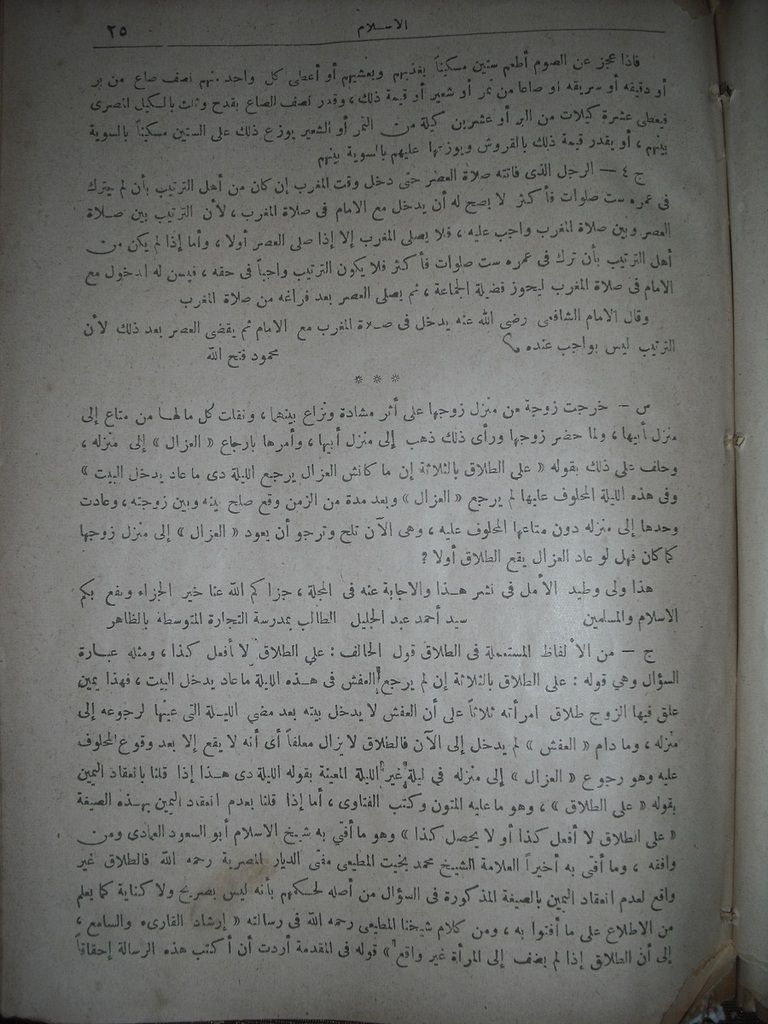 ٢٥
الاسلام
فاذا عجز عن الصوم أطعم ستين مسكيناً يغديهم ويعشيهم أو أعطى كل واحد منهم نصف صاع من بر
أو دقيقه أو سويقه أو صاعا من تمر أو شعير أو قيمة ذلك ، وقدر نصف الصاع بقدح وثلث بالكيل المصرى
فيعطى عشرة كيلات من البر أو عشرين كيلة من التمر أو الشعير يوزع ذلك على الستين مسكيناً بالسوية
بينهم ، أو يقدر قيمة ذلك بالقروش ويوزعها عليهم بالسوية بينهم
ج ٤ — الرجل الذى فاتته صلاة العصر حتى دخل وقت المغرب إن كان من أهل الترتيب بأن لم يترك
فى عمره ست صلوات فأكثر لا يصح له أن يدخل مع الامام فى صلاة المغرب ، لأن الترتيب بين صلاة
العصر وبين صلاة المغرب واجب عليه ، فلا يصلى المغرب إلا إذا صلى العصر أولا ، وأما إذا لم يكن من
أهل الترتيب بأن ترك فى عمره ست صلوات فأكثر فلا يكون الترتيب واجباً فى حقه ، فيسن له الدخول مع
الامام فى صلاة المغرب ليحوز فضيلة الجماعة ، ثم يصلى العصر بعد فراغه من صلاة المغرب
وقال الامام الشافعى رضى الله عنه يدخل فى صلاة المغرب مع الامام ثم يقضى العصر بعد ذلك لأن
الترتيب ليس بواجب عنده
محمود فتح الله
* * *
س — خرجت زوجة من منزل زوجها على أثر مشادة ونزاع بينهما ، ونقلت كل مالها من متاع إلى
منزل أبيها ، ولما حضر زوجها ورأى ذلك ذهب إلى منزل أبيها ، وأمرها بارجاع « العزال » إلى منزله ،
وحلف على ذلك بقوله « على الطلاق بالثلاثة إن ما كانش العزال يرجع الليلة دى ما عاد يدخل البيت »
وفى هذه الليلة المحلوف عليها لم يرجع « العزال » وبعد مدة من الزمن وقع صلح بينه وبين زوجته ، وعادت
وحدها إلى منزله دون متاعها المحلوف عليه ، وهى الآن تلح وترجو أن يعود « العزال » إلى منزل زوجها
كما كان فهل لو عاد العزال يقع الطلاق أولا ؟
هذا ولى وطيد الأمل فى نشر هذا والاجابة عنه فى المجلة ، جزاكم الله عنا خير الجزاء ونفع بكم
الاسلام والمسلمين سيد أحمد عبد الجليل الطالب بمدرسة التجارة المتوسطة بالظاهر
ج — من الألفاظ المستعملة فى الطلاق قول الحالف : على الطلاق لا أفعل كذا ، ومثله عبارة
السؤال وهى قوله : على الطلاق بالثلاثة إن لم يرجع العفش فى هذه الليلة ماعاد يدخل البيت ، فهذا يمين
علق فيها الزوج طلاق امرأته ثلاثاً على أن العفش لا يدخل بيته بعد مضى الليلة التى عينها لرجوعه إلى
منزله ، وما دام « العفش » لم يدخل إلى الآن فالطلاق لا يزال معلقاً أى أنه لا يقع إلا بعد وقوع المحلوف
عليه وهو رجوع « العزال » إلى منزله فى ليلة غير الليلة المعينة بقوله الليلة دى هذا إذا قلنا بانعقاد اليمين
بقوله « على الطلاق » ، وهو ما عليه المتون وكتب الفتاوى ، أما إذا قلنا بعدم انعقاد اليمين بهذه الصيغة
« على الطلاق لا أفعل كذا أو لا يحصل كذا » وهو ما أفتى به شيخ الاسلام أبو السعود العمادى ومن
وافقه ، وما أفتى به أخيراً العلامة الشيخ محمد بخيت المطيعى مفتى الديار المصرية رحمه الله فالطلاق غير
واقع لعدم انعقاد اليمين بالصيغة المذكورة فى السؤال من أصله لحكمهم بأنه ليس بصريح ولا كناية كما يعلم
من الاطلاع على ما أفتوا به ، ومن كلام شيخنا المطيعى رحمه الله فى رسالته « إرشاد القارىء والسامع ،
إلى أن الطلاق إذا لم يضف إلى المرأة غير واقع » قوله فى المقدمة أردت أن أكتب هذه الرسالة إحقاقاً